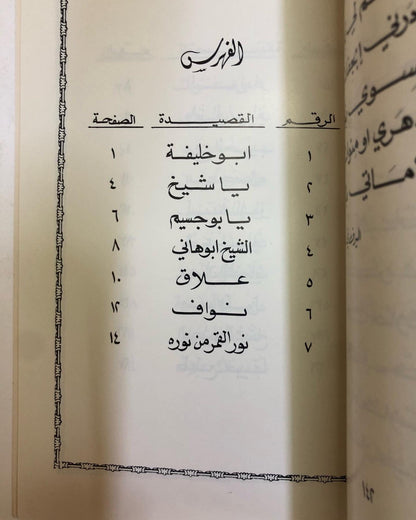 الفهرس
الرقم القصيدة الصفحة
١ ابو خليفة ١
٢ يا شيخ ٤
٣ يا بوجسيم ٦
٤ الشيخ ابوهاني ٨
٥ علاق ١٠
٦ نواف ١٢
٧ نور القمر من نوره ١٤
١٤٢